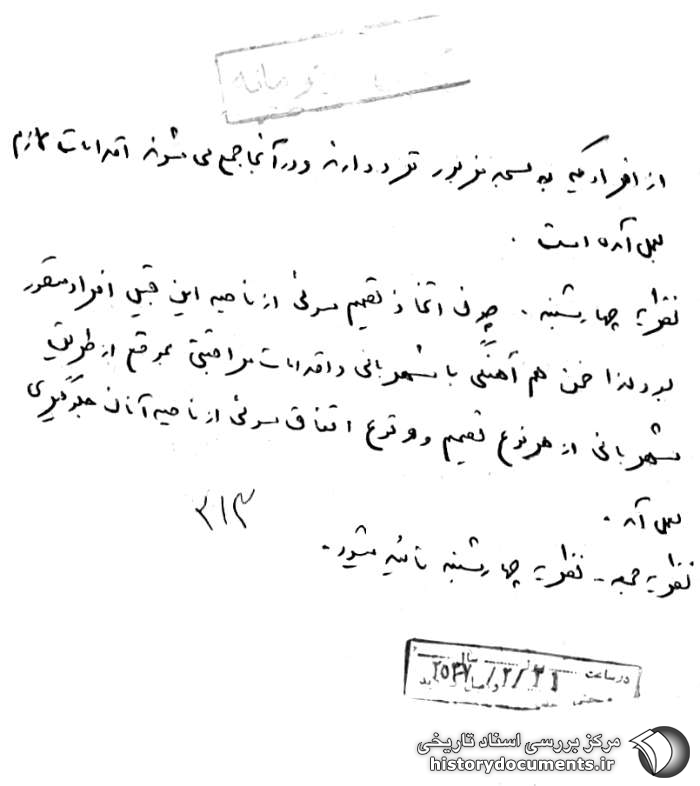 از افرادیکه به مسجد مزبور تردد دارند و در آنجا جمع می شوند اقدامات لازم
بعمل آمده است .
نظریه چهارشنبه . چون اتخاذ تصمیم سوئی از ناحیه این قبیل افراد متصور
بود لذا ضمن هم آهنگی با شهربانی و اقدامات مراقبتی بموقع از طریق
شهربانی از هر نوع تصمیم و وقوع اتفاق سوئی از ناحیه آنان جلوگیری
بعمل آمد .
۳۱۲
نظریه جمعه - نظریه چهارشنبه تائید میشود .
در ساعت سال
۲۵۳۷/۲/۲۱
مرکز بررسی اسناد تاریخی
historydocuments.ir